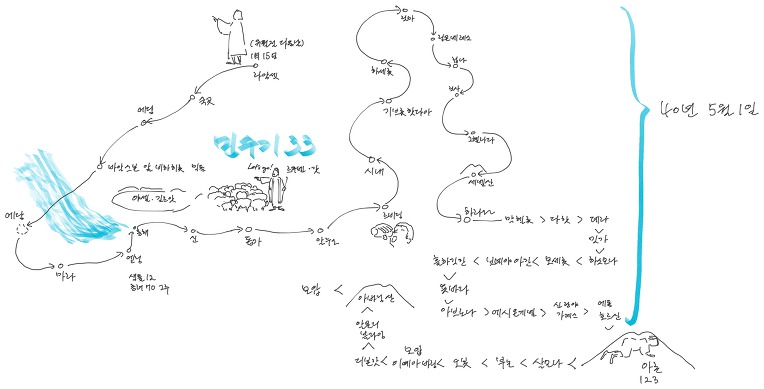 민수기 33
(유월절 다음날)
1월 15일
라암셋
숙곳
에담
바알스본 앞 비하히롯 믹돌
에담
마라
엘림
샘물 12
종려 70 그루
홍해
신
돕가
알루스
르비딤
시내
기브롯핫다아
하세롯
릿마
림몬베레스
립나
릿사
그헬라다
세벨산
하라다
막헬롯 > 다핫 > 데라
밉가
하스모나
모세롯
브네야아간
홀하깃갓
욧바다
아브로나 > 에시온게벨 > 신광야
가데스
에돔
호르산
아론
123
살모나
부논
오봇
모압
이예아바림
디본갓
알몬디
블라다임
아바림산
모압
40년 5월 1일